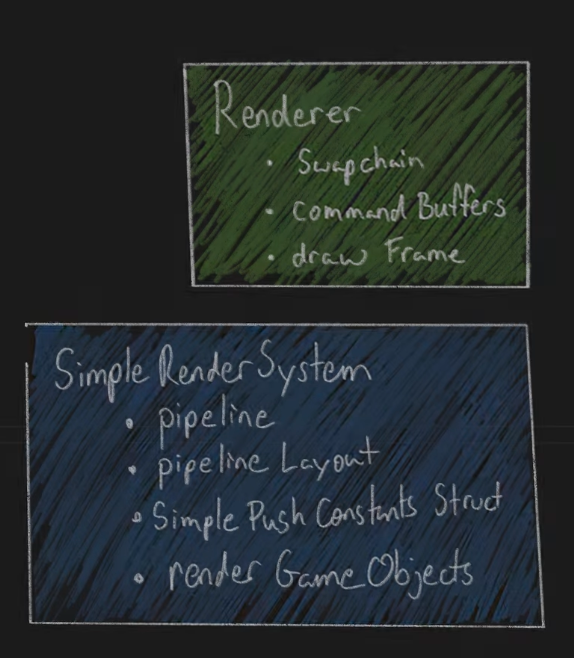 Renderer
• Swapchain
• Command Buffers
• draw Frame
Simple Render System
• pipeline
• pipeline Layout
• Simple Push Constants Struct
• render Game Objects